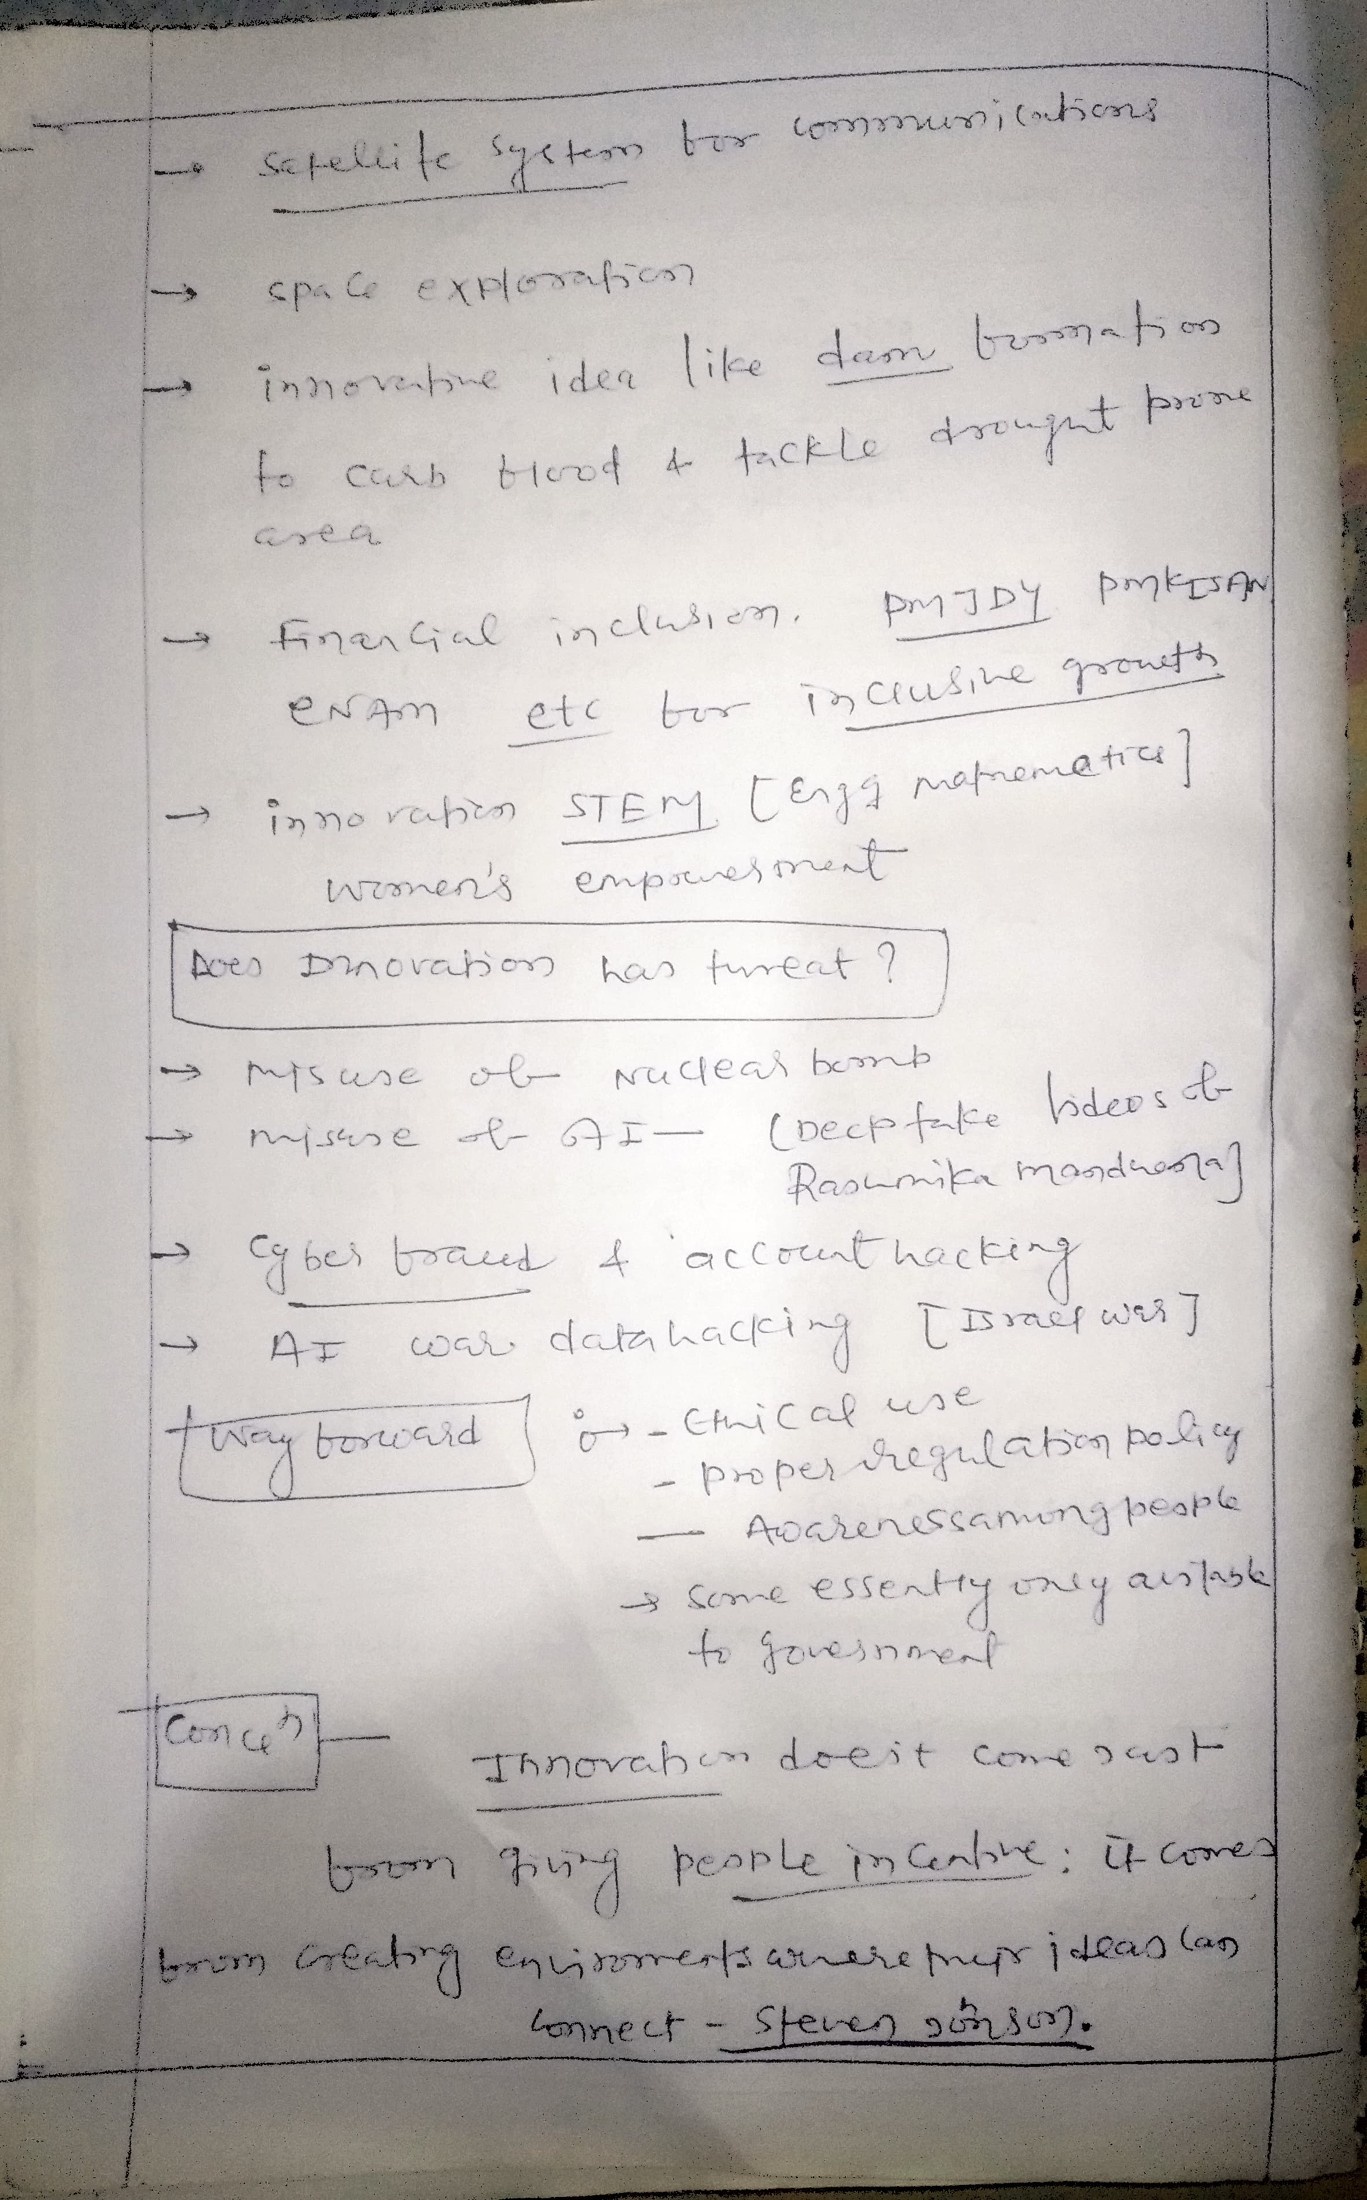 → satellite system for communications
→ space exploration
→ innovative idea like dam formation
to curb flood & tackle drought prone
area
→ Financial inclusion. PMJDY PMKISAN
eNAM etc for inclusive growth
→ innovation STEM [Engg mathematics]
women's empowerment
Does Innovation has threat?
→ misuse of Nuclear bomb
→ misuse of AI — (Deepfake videos of
Rashmika mandhana]
→ Cyber fraud & account hacking
→ AI war data hacking [Israel war]
Way forward :→ - Ethical use
- proper regulation policy
— Awareness among people
→ Some essently only
to government
Concⁿ — Innovation does't come just
from giving people incentive; it comes
from creating enviroments where their ideas can
connect - Steven Johnson.